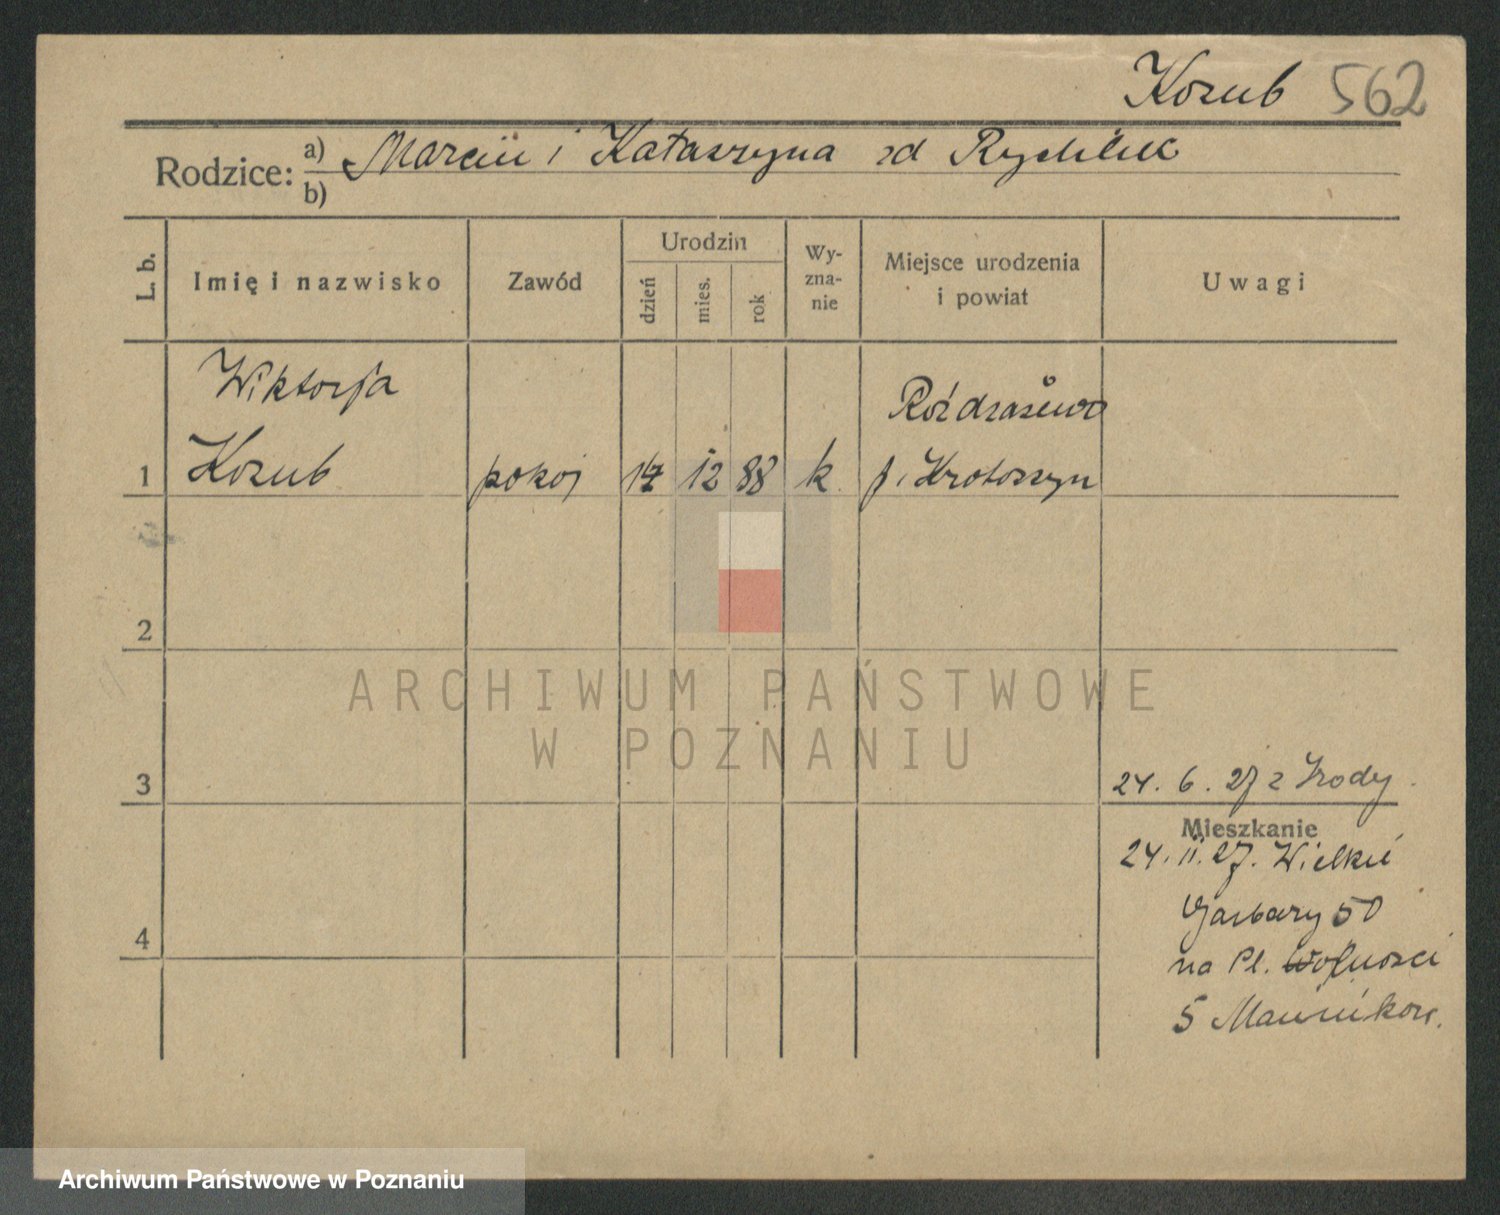 Kozub 562
Rodzice: a) Marcin i Katarzyna zd Rychlik
b)
L. b. Imię i nazwisko Zawód Urodzin dzień mies. rok Wy-zna-nie Miejsce urodzenia i powiat Uwagi
Wiktorja Rozdrażewo
1 Kozub pokoj 12 88 k p. Krotoszyn
2
ARCHIWUM PAŃSTWOWE
W POZNANIU
3 24. 6. 27 z
Mieszkanie
24. 11. 27. Wielkie
Garbary 50
4
na Pl. Wolności
5
Archiwum Państwowe w Poznaniu